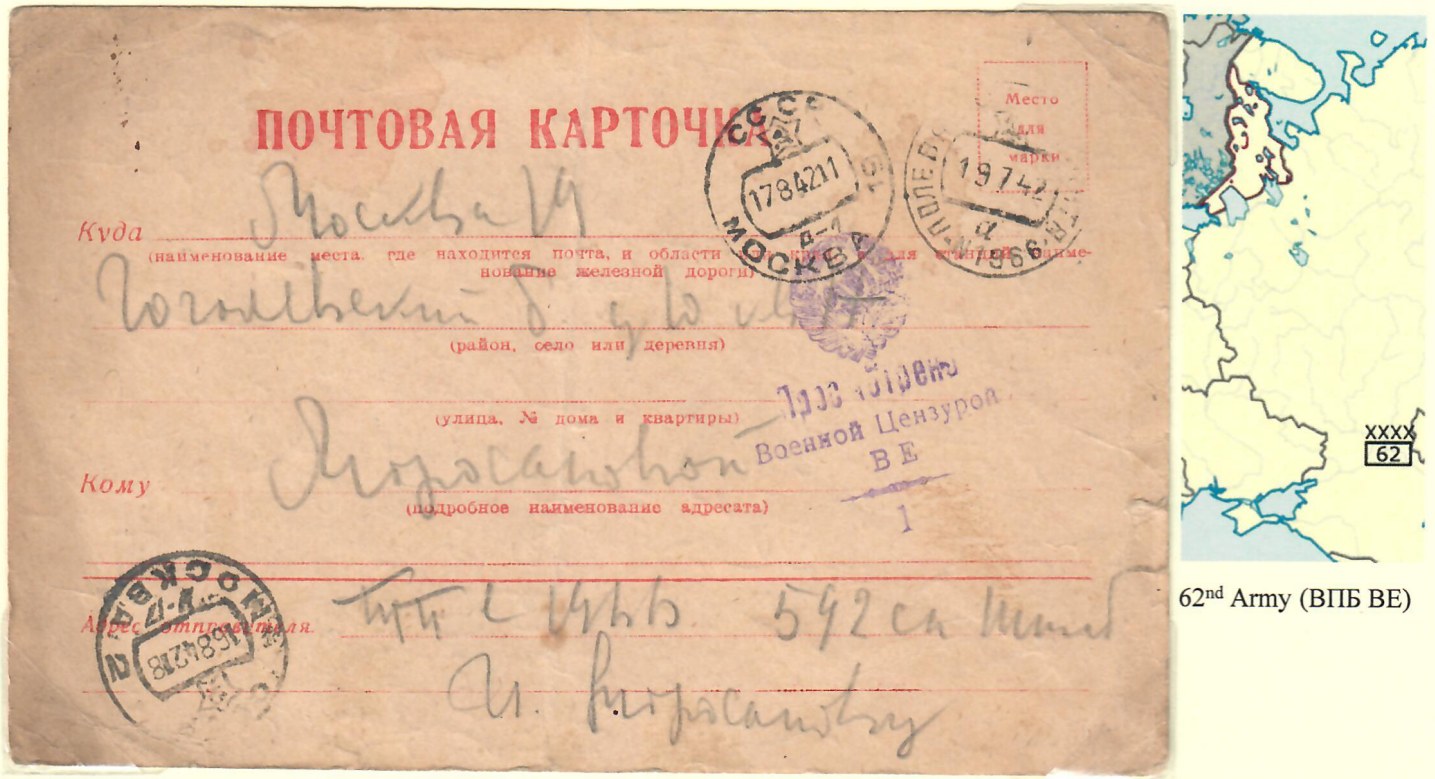 ПОЧТОВАЯ КАРТОЧКА
Место
для
марки
СССР
МОСКВА
17842
19
ПОЛЕВАЯ
19742
а
966
Куда
Москва 19
(наименование места, где находится почта, и области или края, а для станций наиме-
нование железной дороги)
Гоголевский б.
(район, село или деревня)
(улица, № дома и квартиры)
Просмотрено
Военной Цензурой
ВЕ
1
Кому
(подробное наименование адресата)
МОСКВА
16842 18
Адрес отправителя.
592 сп
И.
XXXX
62
62nd Army (ВПБ ВЕ)